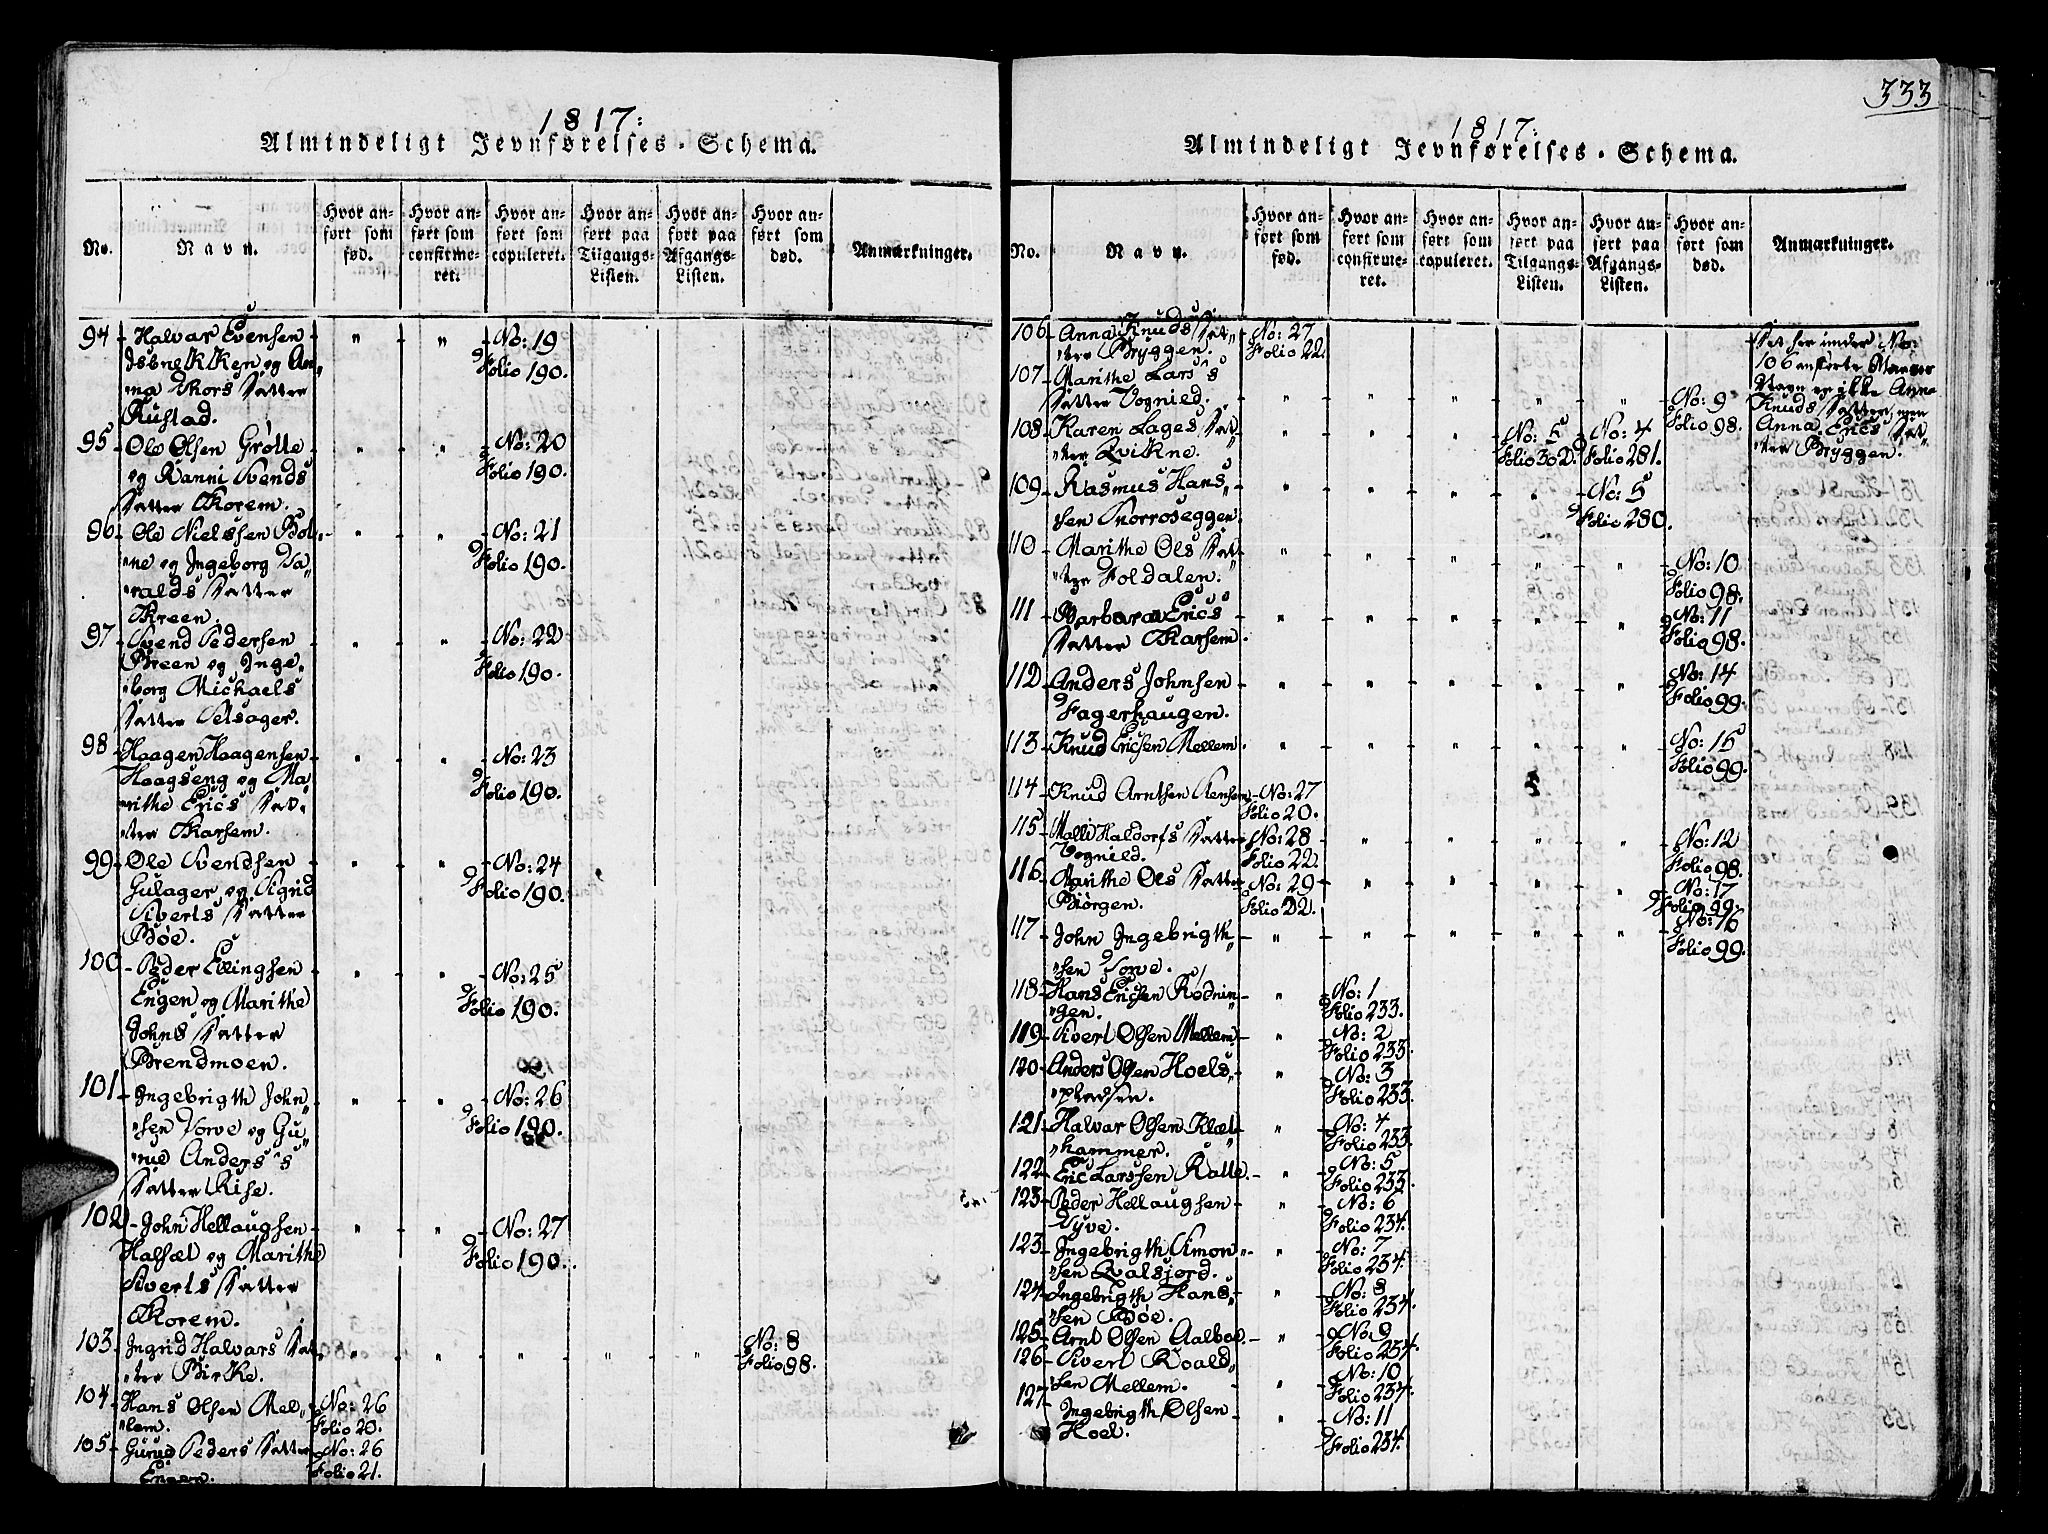 1817:
Almindeligt Jevnførelses-Schema.
No.
Navn.
Hvor anført som fød.
Hvor anført som confirmeret.
Hvor anført som copuleret.
Hvor anført paa Tilgangs-Listen.
Hvor anført paa Afgangs-Listen.
Hvor anført som død.
Anmærkninger.
94 - Halvar Evensen - " - " - No: 19
og An„ Folio 190.
na Thors Datter
Rustad.
95 - Ole Olsen Grøtte - " - " - No: 20
og Ranni Svends Folio 190.
Datter Thorem.
96 - Ole Nielssen Bol„ - " - " - No: 21
"ne og Ingeborg Ha„ Folio 190.
ralds Datter
Kreen.
97 - Svend Pedersen - " - " - No: 22
Breen og Inge„ Folio 190.
"borg Michaels
Datter Selsager.
98 - Haagen Haagensen - " - " - No: 23
Haagseng og Ma„ Folio 190.
"rithe Erics Dat„
"ter Karsem.
99 - Ole Svendsen - " - " - No: 24
Gulager og Sigrid Folio 190.
Siverts Datter
Bøe.
100 - Peder Ellingsen - " - " - No: 25
Engen og Marithe Folio 190.
Johns Datter
Brendmoen.
101 - Ingebrigth John„ - " - " - No: 26
"sen Vorve og Gu„ Folio 190.
"rue Anders's
Datter Rise.
102 - John Hellaugsen - " - " - No: 27
Halsæt og Marithe Folio 190.
Siverts Datter
Thorem.
103 - Ingrid Halvars Dat„ - " - " - " - " - " - No: 8
"ter Birke. Folio 98.
104 - Hans Olsen Mel„ - No: 26
"lem. Folio 20.
105 - Guruo Peders Datter - No: 26
Engen. Folio 21.
333
1817:
Almindeligt Jevnførelses-Schema.
No.
Navn.
Hvor anført som fød.
Hvor anført som confirmeret.
Hvor anført som copuleret.
Hvor anført paa Tilgangs-Listen.
Hvor anført paa Afgangs-Listen.
Hvor anført som død.
Anmærkninger.
106 - Anna Knuds Dat„ - No: 27
"ter Bryggen. Folio 22.
Det her under No:
106 anførte
Navn er ikke Anna
Knuds Datter, men
Anna Erics Dat„
"ter Bryggen.
107 - Marithe Lars's
Datter Vognild. - " - " - " - " - " - No: 9
Folio 98.
108 - Karen Lages Dat„ - " - " - " - No: 5 - No: 4
"ter Qvikne. Folio 302. Folio 281.
109 - Rasmus Hans„ - " - " - " - " - No: 5
"sen Snorroseggen. Folio 280.
110 - Marithe Ols Dat„ - " - " - " - " - " - No: 10
"ter Foldalen. Folio 98.
111 - Barbara Erics - " - " - " - " - " - No: 11
Datter Karsem. Folio 98.
112 - Anders Johnsen - " - " - " - " - " - No: 14
Fagerhaugen. Folio 99.
113 - Knud Ericsen Mellem - " - " - " - " - " - No: 15
Folio 99.
114 - Knud Arntsen Aensem - No: 27
Folio 20.
115 - Malli Haldorfs Datter - No: 28 - " - " - " - " - No: 12
Vognild. Folio 22. Folio 98.
116 - Marithe Ols Datter - No: 29 - " - " - " - " - No: 17
Biørgen. Folio 22. Folio 99.
117 - John Ingebrigth„ - " - " - " - " - " - No: 16
"sen Vorve. Folio 99.
118 - Hans Ericsen Rødnin„ - " - No: 1
"gen. Folio 233.
119 - Sivert Olsen Mellem - " - No: 2
Folio 233.
120 - Anders Olsen Hoels„ - " - No: 3
"pladsen. Folio 233.
121 - Halvar Olsen Klæt„ - " - No: 4
"hammer. Folio 233.
122 - Eric Larssen Ratte. - " - No: 5
Folio 233.
123 - Peder Hellaugsen - " - No: 6
Dyve. Folio 234.
123 - Ingebrigth Simon„ - " - No: 7
"sen Qvalsjord. Folio 234.
124 - Ingebrigth Hans„ - " - No: 8
"sen Bøe. Folio 234.
125 - Arnt Olsen Aalboe. - " - No: 9
Folio 234.
126 - Sivert Roald„ - " - No: 10
"sen Mellem. Folio 234.
127 - Ingebrigth Olsen - " - No: 11
Hoel. Folio 234.